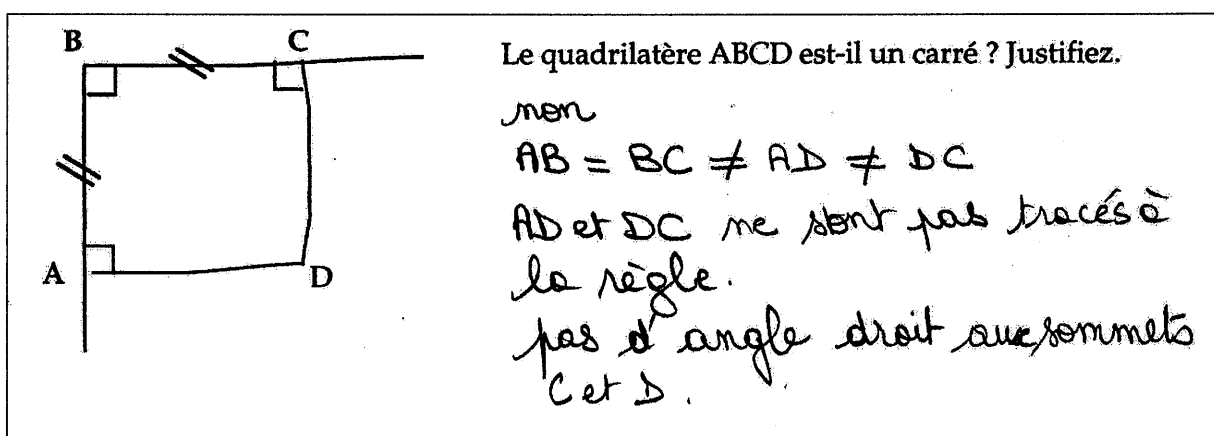 B
C
A
D
Le quadrilatère ABCD est-il un carré ? Justifiez.
non
AB = BC ≠ AD ≠ DC
AD et DC ne sont pas tracés à
la règle.
pas d'angle droit aux sommets
C et D.